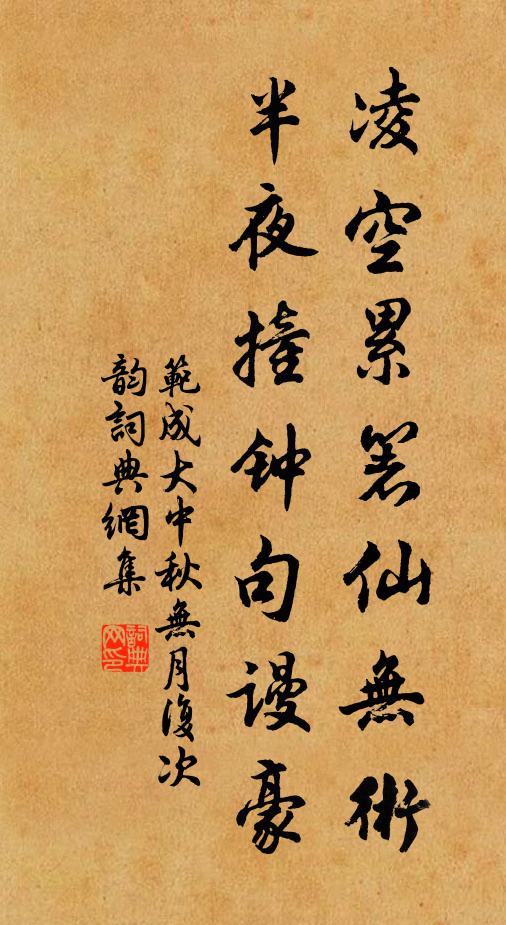 凌空累箸仙無術
半夜撞钟句谩豪
範成大中秋無月復次
韵詞典網集
詞典
网印